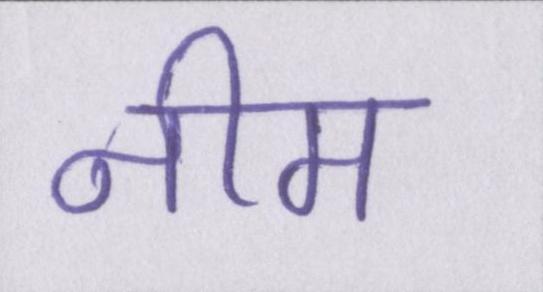 नीम